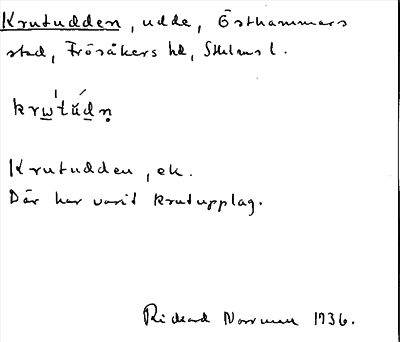 Krutudden, udde, Östhammars
stad, Frösåkers hd, Sthlms l.
krw̲'tŭ́d̲ṇ
Krutudden, ek.
Där har varit krutupplag.
Rickard Norrman 1936.